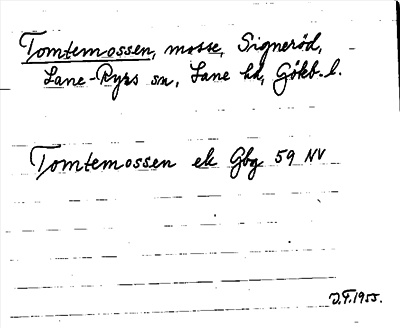 Tomtemossen, mosse, Signeröd,
Lane-Ryrs sn, Lane hd, Göteb. l.
Tomtemossen ek Gbg 59 NV
J.F. 1955.